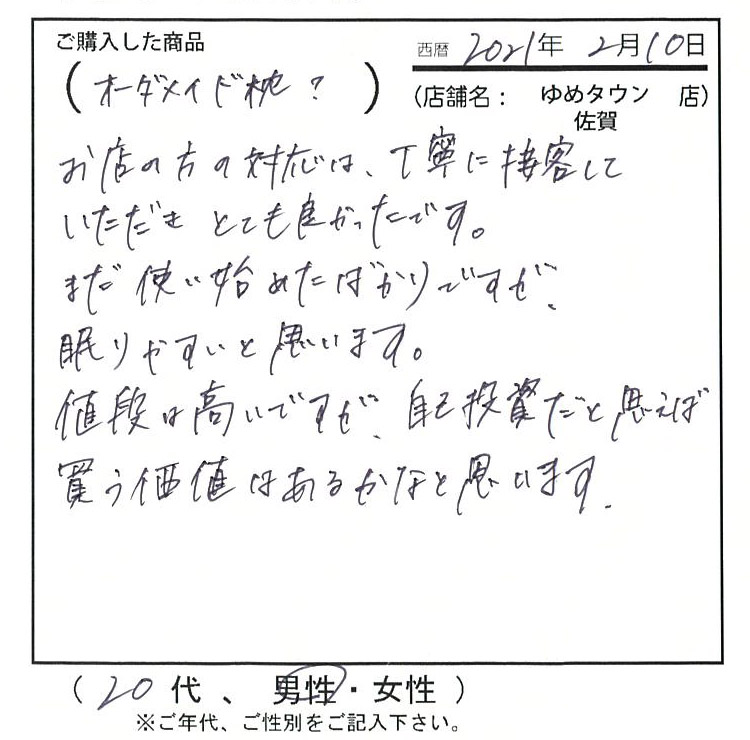 ご購入した商品
西暦 2021年 2月10日
(オーダメイド枕?)
(店舗名: ゆめタウン 店)
佐賀
お店の方の対応は、丁寧に接客して
いただき とても良かったです。
まだ 使い始めたばかりですが、
眠りやすいと思います。
値段は高いですが、自己投資だと思えば
買う価値はあるかなと思います.
(20代、男性・女性)
※ご年代、ご性別をご記入下さい。